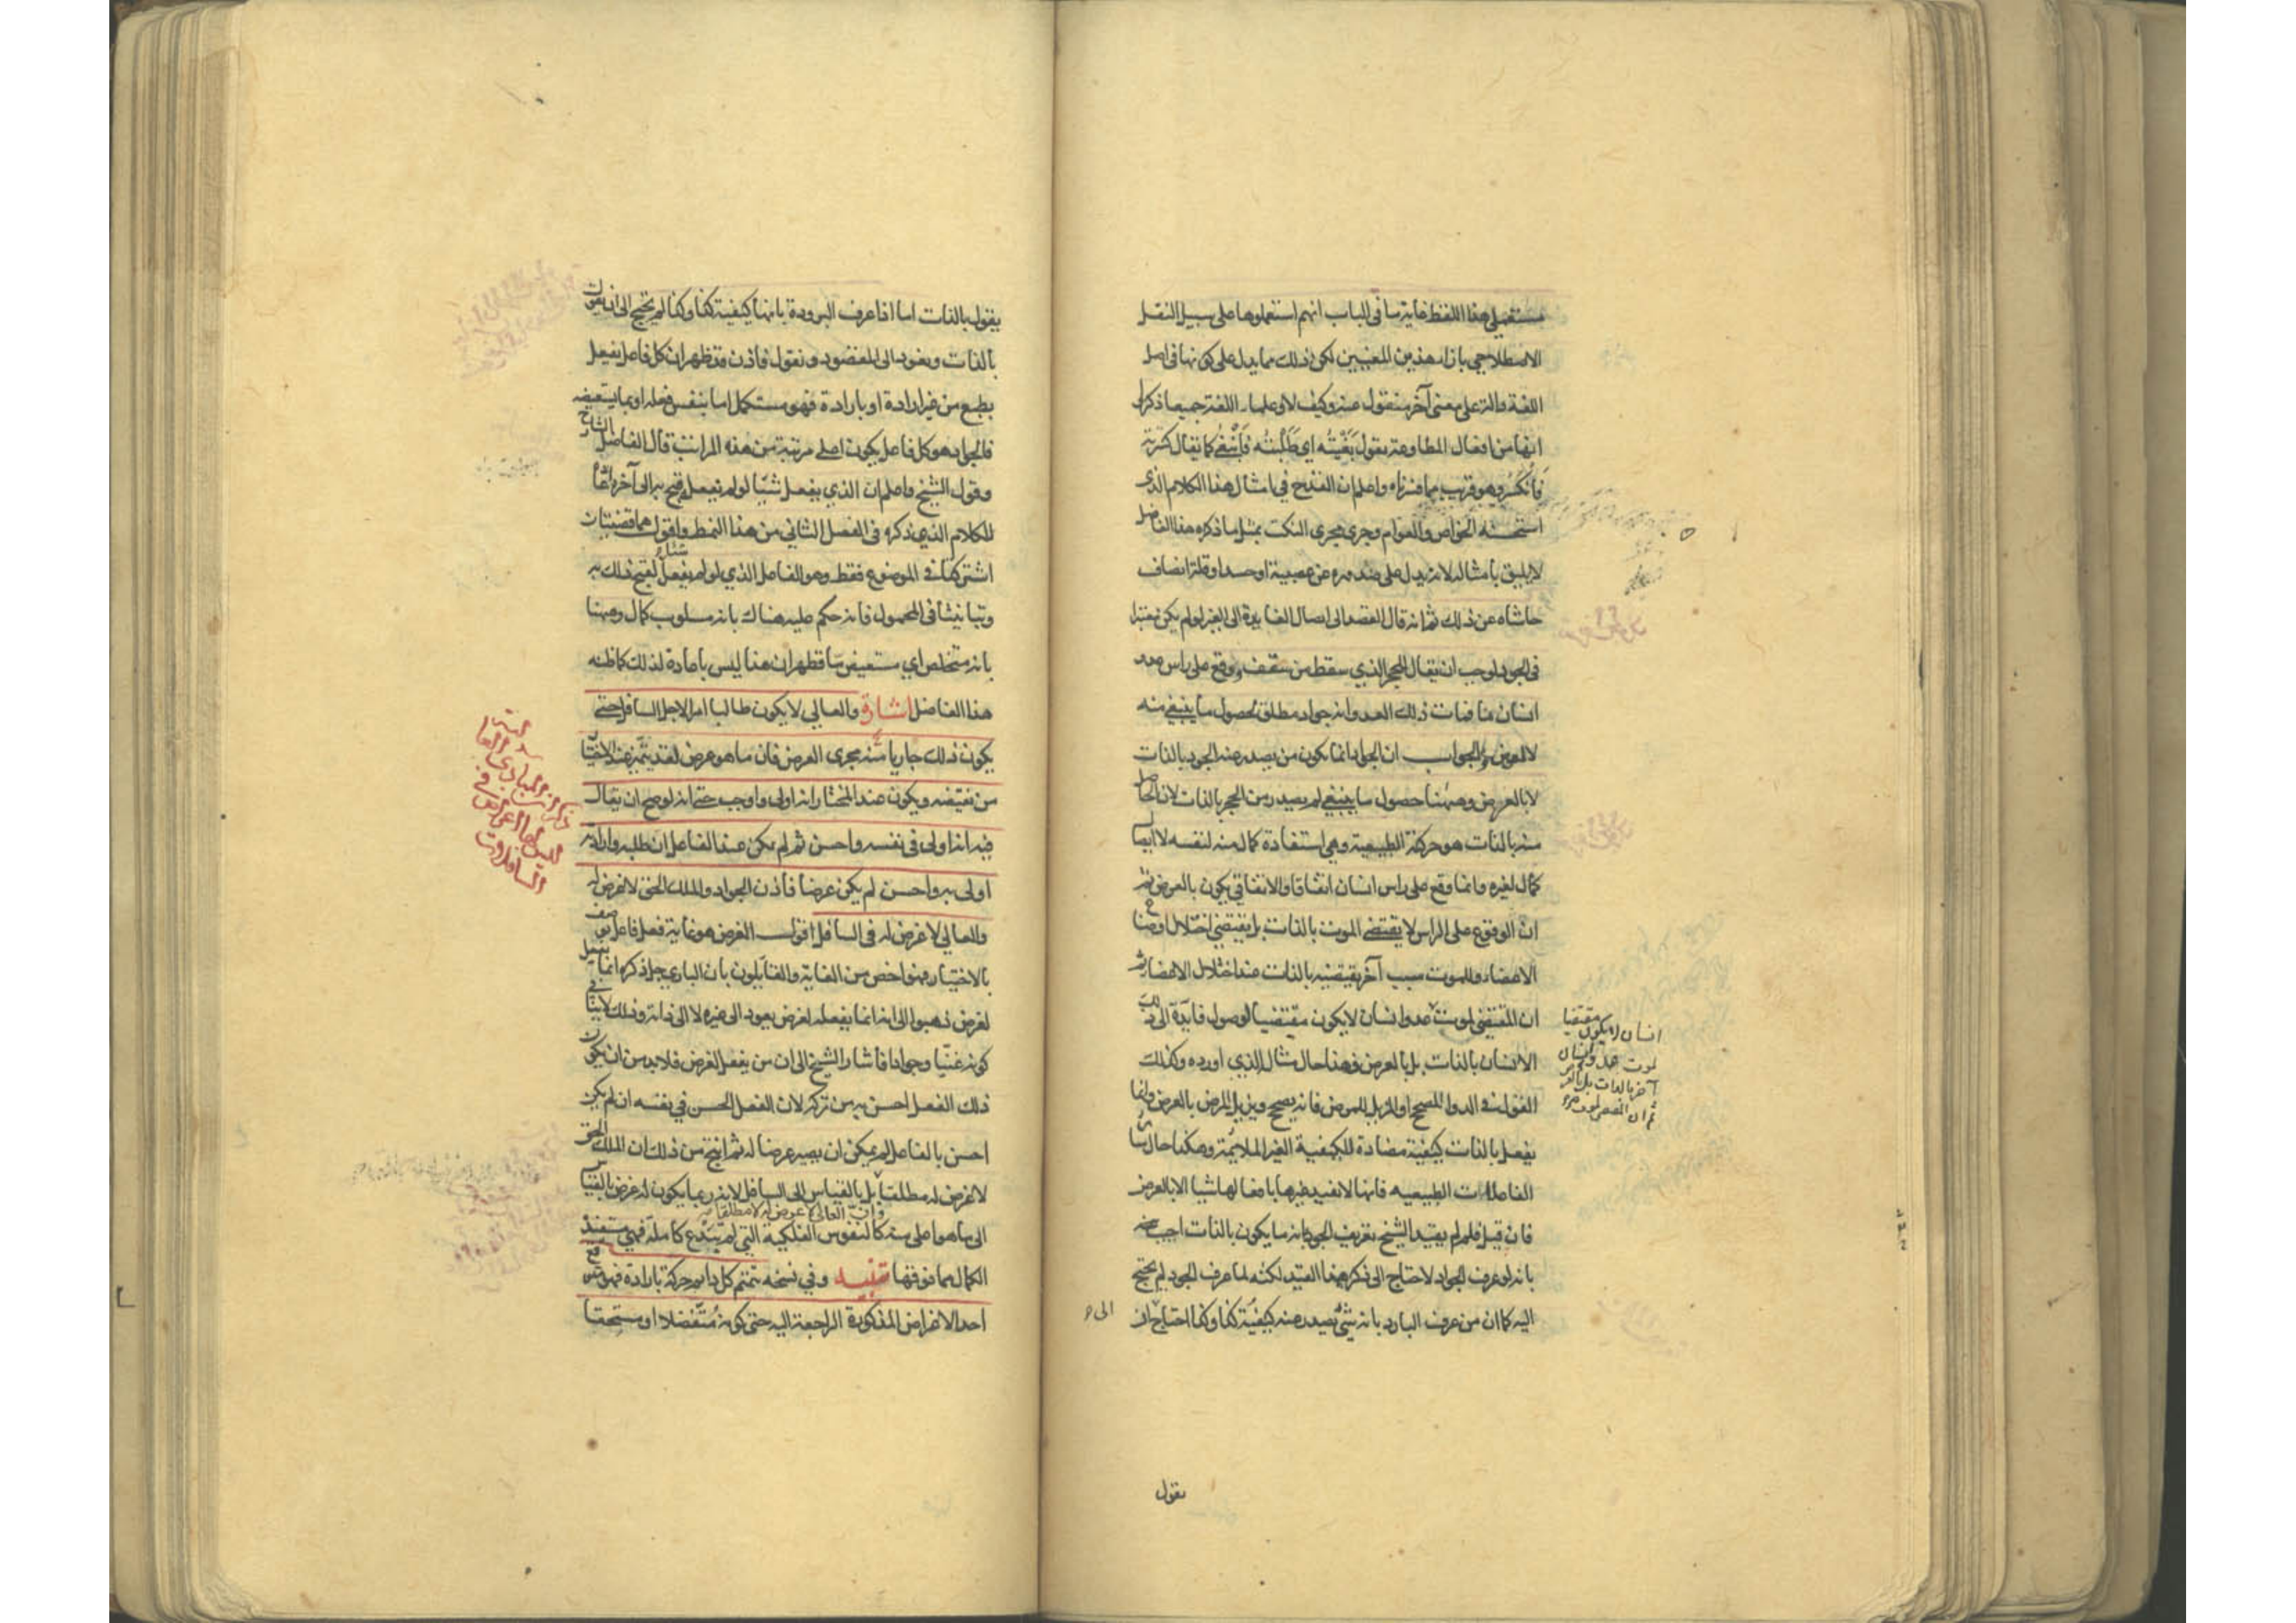 مستعملي هذا اللفظ غاية ما في الباب انهم استعملوها على سبيل النقل
الاصطلاحي بازاء هذين المعنيين لكن ذلك مما يدل على كونها في اصل
اللغة دالة على معنى آخر منقول عنه وكيف لا وعلماء اللغة جميعا ذكروا
انها من افعال المطاوعة يقول بَغَيْتُه اي طَلَبْتُه فَانْبَغَى كما يقال كسرته
فَانْكَسَرَ وهو قريب مما فسرناه واعلم ان القدح في امثال هذا الكلام الذي
استحسنه الخواص والعوام وجرى مجرى النكت بمثل ما ذكره هذا الفاضل
لا يليق بامثاله لانه يدل على صدوره عن عصبية او حسد او قلة انصاف
حاشاه عن ذلك ثم انه قال القصد الى ايصال الفايدة الى الغير لو لم يكن معتبرا
في الجود لوجب ان يقال للحجر الذي سقط من سقف ووقع على راس عدو
انسان ما فمات ذلك العدو انه جواد مطلق لحصول ما ينبغي منه
لا لعوض والجواب ان الجواد انما يكون من يصدر عنه الجود بالذات
لا بالعرض وههنا حصول ما ينبغي لم يصدر من الحجر بالذات لان الحاصل
منه بالذات هو حركته الطبيعية وهي استفادة كمال منه لنفسه لا ايصال
كمال لغيره وانما وقع على راس انسان اتفاقا والاتفاقي يكون بالعرض ثم
ان الوقوع على الراس لا يقتضي الموت بالذات بل يقتضي اختلال اوضاع
الاعضاء وللموت سبب آخر يقتضيه بالذات عند اختلال الاعضاء ثم
ان المقتضي لموت عدو انسان لا يكون مقتضيا لوصول فايدة الى ذلك
الانسان بالذات بل بالعرض فهذا حال مثال الذي اورده وكذلك
القول في الدواء المصحح او المزيل للمرض فانه يصحح ويزيل المرض بالعرض وانما
يفعل بالذات كيفية مضادة للكيفية الغير الملايمة وهكذا حال سائر
الفاعلات الطبيعيه فانها لا تفيد غيرها بافعالها شيا الا بالعرض
فان قيل فلم لم يقيد الشيخ تعريف الجود بانه ما يكون بالذات اجيب عنه
بانه لو عرف الجواد لاحتاج الى ذكر هذا القيد لكنه لما عرف الجود لم يحتج
اليه كما ان من عرف البارد بانه شئ يصدر عنه كيفية كذا وكذا احتاج ان
انسان لا يكون مقتضيا
لموت عدو انسان
آخر بالذات بل بالعرض
يقول
يقول بالذات اما اذا عرف البرودة بانها كيفية كذا وكذا لم يحتج الى ان يقول
بالذات ونعود الى المقصود ونقول فاذن قد ظهر ان كل فاعل يفعل
بطبع من غير ارادة او بارادة فهو مستكمل اما بنفس فعله او بما يستعيضه
فالجواد هو كل فاعل يكون اعلى مرتبة من هذه المراتب قال الفاضل الشارح
وقول الشيخ واعلم ان الذي يفعل شيئا لو لم يفعله قبح به الى آخره اعادة
للكلام الذي ذكره في الفصل الثاني من هذا النمط واقول هما قضيتان
اشتركتا في الموضوع فقط وهو الفاعل الذي لو لم يفعل شيئا لقبح ذلك به
وتباينتا في المحمول فانه حكم عليه هناك بانه مسلوب كمال وههنا
بانه متخلص اي مستعيض ما فظهر ان هذا ليس باعادة لذلك كما ظنه
هذا الفاضل اشارة والعالي لا يكون طالبا امرا لاجل السافل حتى
يكون ذلك جاريا منه مجرى الغرض فان ما هو غرض لقد يتميز عند الاختيار
من نقيضه ويكون عند المختار انه اولى واوجب حتى انه لو صح ان يقال
فيه انه اولى في نفسه واحسن ثم لم يكن عند الفاعل ان طلبه وارادته
اولى به واحسن لم يكن غرضا فاذن الجواد والملك الحق لا غرض له
والعالي لا غرض له في السافل اقول الغرض هو غاية فعل فاعل يوصف
بالاختيار فهو اخص من الغاية والقايلون بان الباري جل ذكره انما يفعل
لغرض ذهبوا الى انه انما يفعله لغرض يعود الى غيره لا الى ذاته وذلك لا ينافي
كونه غنيا وجوادا فاشار الشيخ الى ان من يفعل لغرض فلا بد من ان يكون
ذلك الفعل احسن به من تركه لان الفعل الحسن في نفسه ان لم يكن
احسن بالفاعل لم يمكن ان يصير غرضا له ثم انتج من ذلك ان الملك الحق
لا غرض له مطلقا بل بالقياس الى السافل لانه ربما يكون له غرض بالقياس
وان العالي لا غرض له لا مطلقا
الى ما هو اعلى منه كالنفوس الفلكية التي لم تبدع كاملة فهي تستفيد
الكمال مما فوقها تنبيه وفي نسخة تتميم كل دايم حركة بارادة فهو متوقع
احد الاغراض المذكورة الراجعة اليه حتى كونه متفضلا او مستحقا